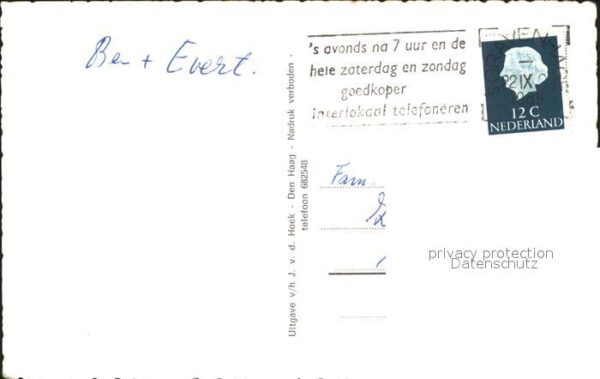 Be + Evert.
's avonds na 7 uur en de
hele zaterdag en zondag
goedkoper
interlokaal telefoneren
12 C
NEDERLAND
Uitgave v/h J. v. d. Hoek - Den Haag - Nadruk verboden -
telefoon 682548
Fam.
privacy protection
Datenschutz